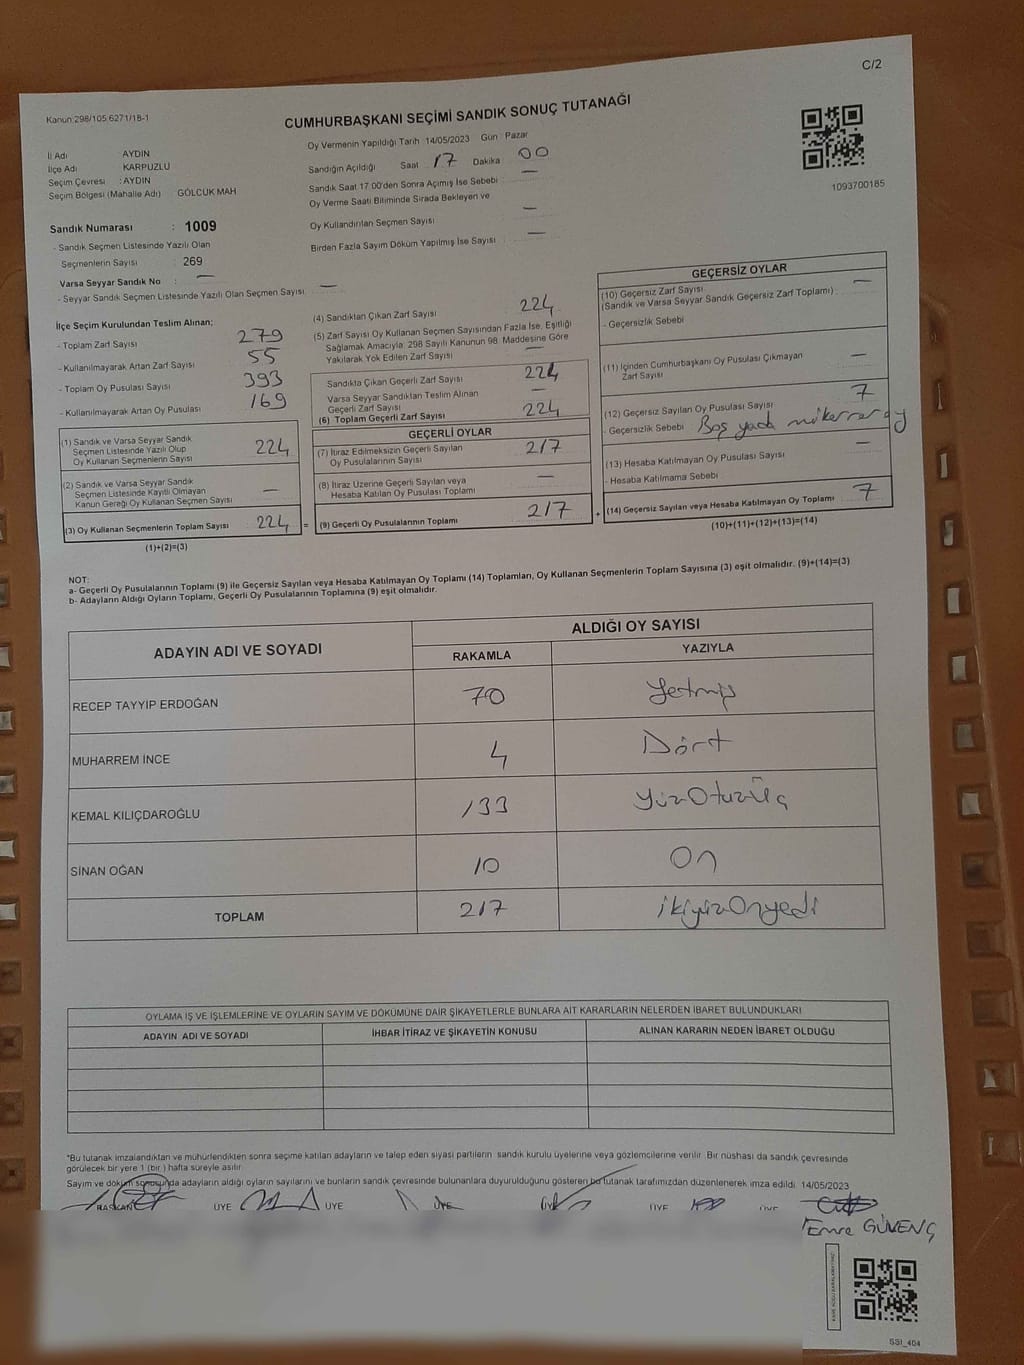 C/2
Kanun:298/105,6271/18-1
CUMHURBAŞKANI SEÇİMİ SANDIK SONUÇ TUTANAĞI
İl Adı AYDIN
İlçe Adı KARPUZLU
Seçim Çevresi : AYDIN
Seçim Bölgesi (Mahalle Adı) GÖLCÜK MAH
Oy Vermenin Yapıldığı Tarih 14/05/2023 Gün Pazar
Sandığın Açıldığı Saat 17 Dakika 00
Sandık Saat 17:00'den Sonra Açımış İse Sebebi —
Oy Verme Saati Bitiminde Sırada Bekleyen ve
Oy Kullandırılan Seçmen Sayısı —
Birden Fazla Sayım Döküm Yapılmış İse Sayısı —
1093700185
Sandık Numarası : 1009
- Sandık Seçmen Listesinde Yazılı Olan
Seçmenlerin Sayısı : 269
Varsa Seyyar Sandık No : —
- Seyyar Sandık Seçmen Listesinde Yazılı Olan Seçmen Sayısı —
İlçe Seçim Kurulundan Teslim Alınan;
- Toplam Zarf Sayısı 279
- Kullanılmayarak Artan Zarf Sayısı 55
- Toplam Oy Pusulası Sayısı 393
- Kullanılmayarak Artan Oy Pusulası 169
(1) Sandık ve Varsa Seyyar Sandık
Seçmen Listesinde Yazılı Olup
Oy Kullanan Seçmenlerin Sayısı 224
(2) Sandık ve Varsa Seyyar Sandık
Seçmen Listesinde Kayıtlı Olmayan
Kanun Gereği Oy Kullanan Seçmen Sayısı —
(3) Oy Kullanan Seçmenlerin Toplam Sayısı 224 =
(1)+(2)=(3)
(4) Sandıktan Çıkan Zarf Sayısı 224
(5) Zarf Sayısı Oy Kullanan Seçmen Sayısından Fazla İse, Eşitliği
Sağlamak Amacıyla; 298 Sayılı Kanunun 98. Maddesine Göre
Yakılarak Yok Edilen Zarf Sayısı —
Sandıkta Çıkan Geçerli Zarf Sayısı 224
Varsa Seyyar Sandıktan Teslim Alınan
Geçerli Zarf Sayısı —
(6) Toplam Geçerli Zarf Sayısı 224
GEÇERLİ OYLAR
(7) İtiraz Edilmeksizin Geçerli Sayılan
Oy Pusulalarının Sayısı 217
(8) İtiraz Üzerine Geçerli Sayılan veya
Hesaba Katılan Oy Pusulası Toplamı —
(9) Geçerli Oy Pusulalarının Toplamı 217 +
GEÇERSİZ OYLAR
(10) Geçersiz Zarf Sayısı
(Sandık ve Varsa Seyyar Sandık Geçersiz Zarf Toplamı) : —
- Geçersizlik Sebebi
(11) İçinden Cumhurbaşkanı Oy Pusulası Çıkmayan
Zarf Sayısı —
(12) Geçersiz Sayılan Oy Pusulası Sayısı 7
- Geçersizlik Sebebi Boş yada mükerrer oy
(13) Hesaba Katılmayan Oy Pusulası Sayısı —
- Hesaba Katılmama Sebebi
(14) Geçersiz Sayılan veya Hesaba Katılmayan Oy Toplamı 7
(10)+(11)+(12)+(13)=(14)
NOT:
a- Geçerli Oy Pusulalarının Toplamı (9) ile Geçersiz Sayılan veya Hesaba Katılmayan Oy Toplamı (14) Toplamları, Oy Kullanan Seçmenlerin Toplam Sayısına (3) eşit olmalıdır. (9)+(14)=(3)
b- Adayların Aldığı Oyların Toplamı, Geçerli Oy Pusulalarının Toplamına (9) eşit olmalıdır.
ADAYIN ADI VE SOYADI
ALDIĞI OY SAYISI
RAKAMLA YAZIYLA
RECEP TAYYIP ERDOĞAN 70 Yetmiş
MUHARREM İNCE 4 Dört
KEMAL KILIÇDAROĞLU 133 YüzOtuzÜç
SİNAN OĞAN 10 On
TOPLAM 217 ikiyüzOnyedi
OYLAMA İŞ VE İŞLEMLERİNE VE OYLARIN SAYIM VE DÖKÜMÜNE DAİR ŞİKAYETLERLE BUNLARA AİT KARARLARIN NELERDEN İBARET BULUNDUKLARI
ADAYIN ADI VE SOYADI İHBAR İTİRAZ VE ŞİKAYETİN KONUSU ALINAN KARARIN NEDEN İBARET OLDUĞU
*Bu tutanak imzalandıktan ve mühürlendikten sonra seçime katılan adayların ve talep eden siyasi partilerin sandık kurulu üyelerine veya gözlemcilerine verilir. Bir nüshası da sandık çevresinde
görülecek bir yere 1 (bir ) hafta süreyle asılır.
Sayım ve döküm sonosunda adayların aldığı oyların sayılarını ve bunların sandık çevresinde bulunanlara duyurulduğunu gösteren bu tutanak tarafımızdan düzenlenerek imza edildi. 14/05/2023
BAŞKAN ÜYE ÜYE ÜYE ÜYE ÜYE ÜYE
Emre GÜVENÇ
SSI_404